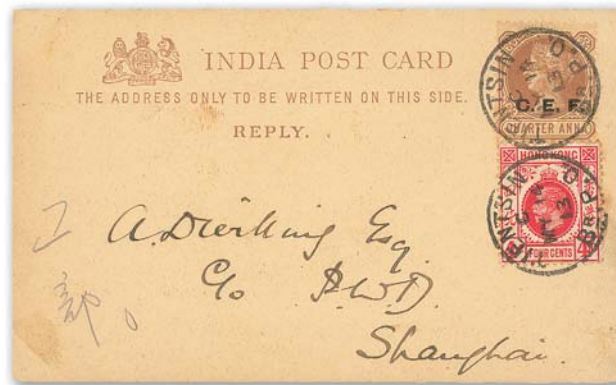 INDIA POST CARD
THE ADDRESS ONLY TO BE WRITTEN ON THIS SIDE.
REPLY.
C. E. F.
QUARTER ANNA
HONG KONG
FOUR CENTS
TIENTSIN
Br. P.O.
TIENTSIN
Br. P.O.
13
Esq.
C/o P.W.D.
Shanghai.
工
部